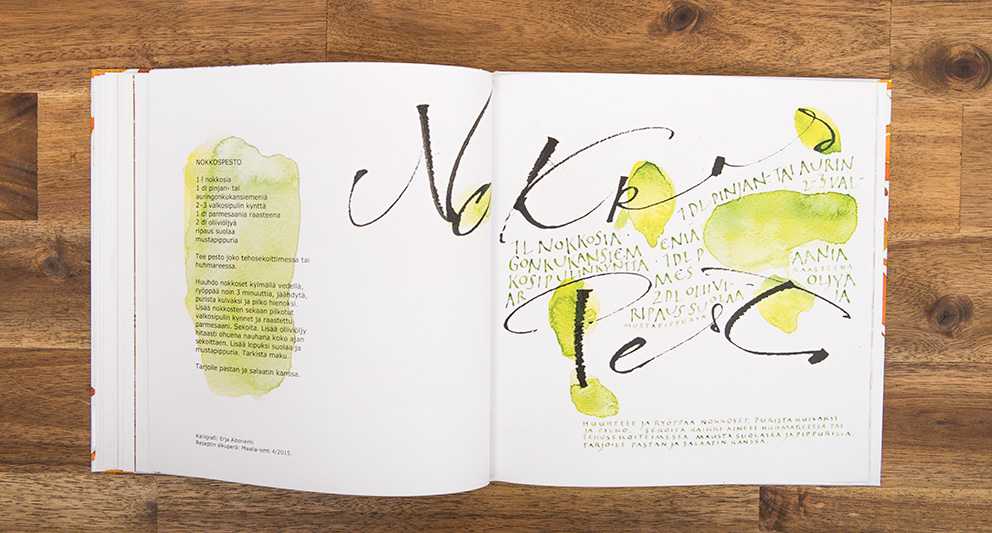 NOKKOSPESTO
1 l nokkosia
1 dl pinjan- tai
auringonkukansiemeniä
2-3 valkosipulin kynttä
1 dl parmesaania raasteena
2 dl oliiviöljyä
ripaus suolaa
mustapippuria
Tee pesto joko tehosekoittimessa tai
huhmareessa.
Huuhdo nokkoset kylmällä vedellä,
ryöppää noin 3 minuuttia, jäähdytä,
purista kuivaksi ja pilko hienoksi.
Lisää nokkosten sekaan pilkotut
valkosipulin kynnet ja raastettu
parmesaani. Sekoita. Lisää oliiviöljy
hitaasti ohuena nauhana koko ajan
sekoittaen. Lisää lopuksi suolaa ja
mustapippuria. Tarkista maku.
Tarjoile pastan ja salaatin kanssa.
Kalligrafi: Erja
Reseptin alkuperä: Maalla-lehti 4/2015.
Nokkos
1 DL PINJAN- TAI AURIN
1 L NOKKOSIA
GONKUKANSIEMENIÄ
2-3 VAL-
KOSIPULINKYNTTÄ
1 DL PARMESAANIA
RAASTEENA
2 DL OLIIVIÖLJYÄ
RIPAUS SUOLAA
MUSTAPIPPURIA
Pesto
HUUHTELE JA RYÖPPÄÄ NOKKOSET, PURISTA KUIVAKSI
JA PILKO. SEKOITA KAIKKI AINEET HUHMAREESSA TAI
TEHOSEKOITTIMESSA. MAUSTA SUOLALLA JA PIPPURILLA.
TARJOILE PASTAN JA SALAATIN KANSSA